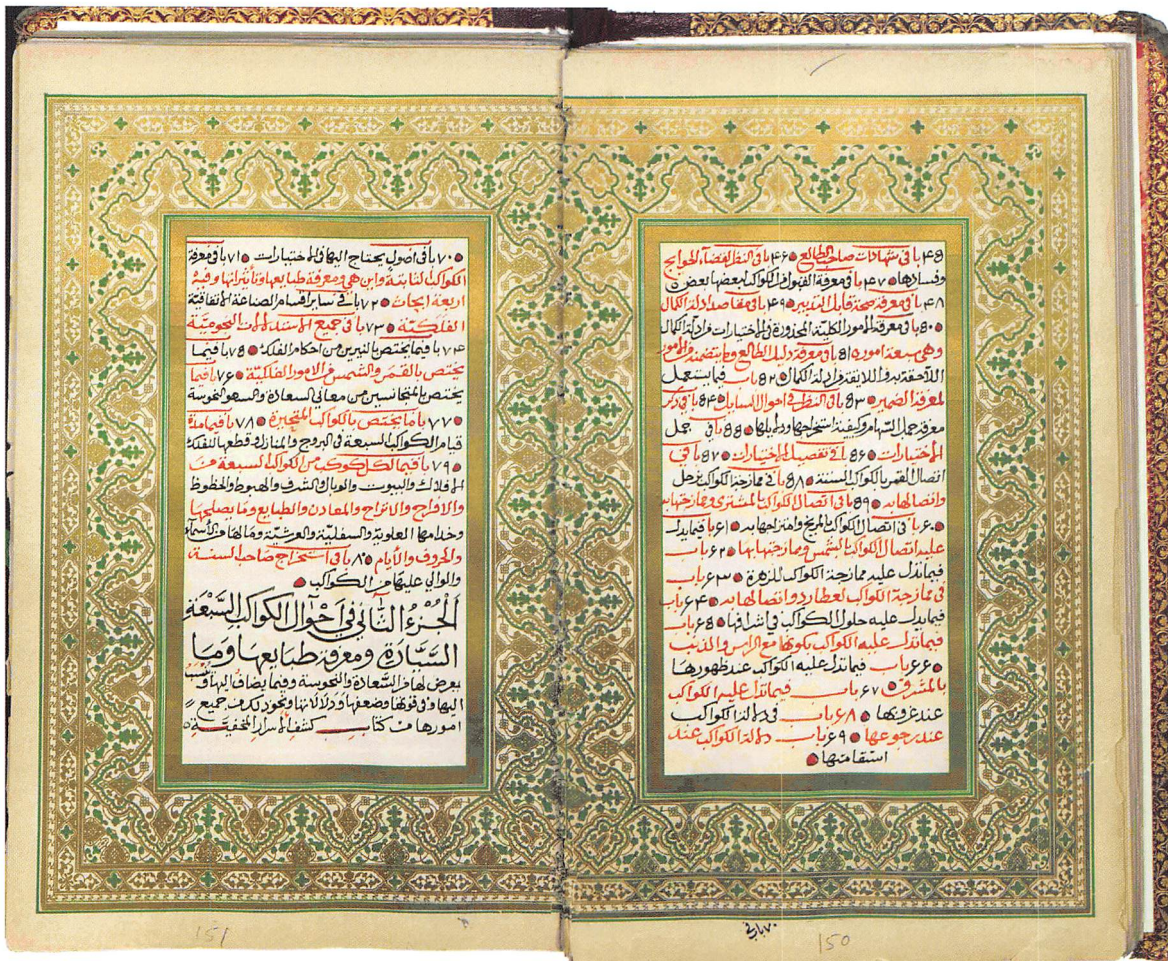 ٤٥ باب في شهادات صاحب الطالع ● ٤٦ باب في النظر لقضاء الحوايج
وفسادها ● ٤٧ باب في معرفة القبول من الكواكب بعضها بعض
٤٨ باب في معرفة صحة قابل التدبير ● ٤٩ باب في مقاصد ادلة الكمال
● ٥٠ باب في معرفة الامور الكلية المحذورة في الاختيارات من ادلة الكمال
وهي سبعة امور ● ٥١ باب في معرفة دليل الطالع وما يتضمنه من الامور
اللاحقة به واللايقة من ادلة الكمال ● ٥٢ باب فيما يستعمل
لمعرفة الضمير ● ٥٣ باب في النظر في احوال السايل ● ٥٤ باب في ذكر
معرفة جمل السهام وكيفية استخراجها ودلايلها ● ٥٥ باب في جمل
الاختيارات ● ٥٦ باب في تفصيل الاختيارات ● ٥٧ باب في
اتصال القمر بالكواكب الستة ● ٥٨ باب في ممازجة الكواكب زحل
واتصالها به ● ٥٩ باب في اتصال الكواكب بالمشتري وممازجتها به
● ٦٠ باب في اتصال الكواكب بالمريخ وامتزاجها به ● ٦١ باب فيما يدل
عليه اتصال الكواكب بالشمس وممازجتها بها ● ٦٢ باب
فيما تدل عليه ممازجة الكواكب للزهرة ● ٦٣ باب
في ممازجة الكواكب لعطارد واتصالها به ● ٦٤ باب
فيما يدل عليه حلول الكواكب في اشرافها ● ٦٥ باب
فيما تدل عليه الكواكب بكونها مع الراس والذنب
● ٦٦ باب فيما تدل عليه الكواكب عند ظهورها
بالمشرق ● ٦٧ باب فيما تدل عليه الكواكب
عند غروبها ● ٦٨ باب في دلالة الكواكب
عند رجوعها ● ٦٩ باب دلالة الكواكب عند
استقامتها ●
٧٠ باب في
150
● ٧٠ باب في اصول يحتاج اليها في الاختيارات ● ٧١ باب في معرفة
الكواكب الثابتة واين هي ومعرفة طبايعها وتأثيراتها وفيه
اربعة ابحاث ● ٧٢ باب في ساير اقسام الصناعة الاتفاقية
الفلكية ● ٧٣ باب في جميع الاستدلالات النجومية
٧٤ باب فيما يختص بالنيرين من احكام الفلك ● ٧٥ باب فيما
يختص بالقمر والشمس من الامور الفلكية ● ٧٦ باب فيما
يختص بالمتجانسين من معاني السعادة والنحوسة
● ٧٧ باب ما يختص بالكواكب المتحيرة ● ٧٨ باب فيما مدة
قيام الكواكب السبعة في البروج والمنازل وقطعها للفلك
● ٧٩ باب فيما لكل كوكب من الكواكب السبعة من
الافلاك والبيوت والوبال والشرف والهبوط والحظوظ
والافراح والاتراح والمعادن والطبايع وما يصلح لها
وخدامها العلوية والسفلية والعرشية وما لها من الاسماء
والحروف والأيام ● ٨٠ باب في استخراج صاحب السنة
والوالي عليها من الكواكب ●
الجزء الثاني في احوال الكواكب السبعة
السيارة ومعرفة طبايعها وما
يعرض لها من السعادة والنحوسة وفيما يضاف اليها
اليها وفي قوتها وضعفها ودلالاتها ونحو ذلك من جميع
امورها من كتاب كشف الاسرار المخفية
151